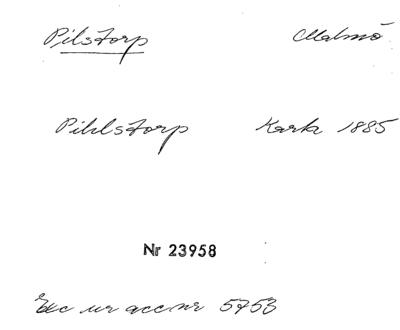 Pilstorp Malmö
Pihlstorp Karta 1885
Nr 23958
Exc ur acc nr 5753